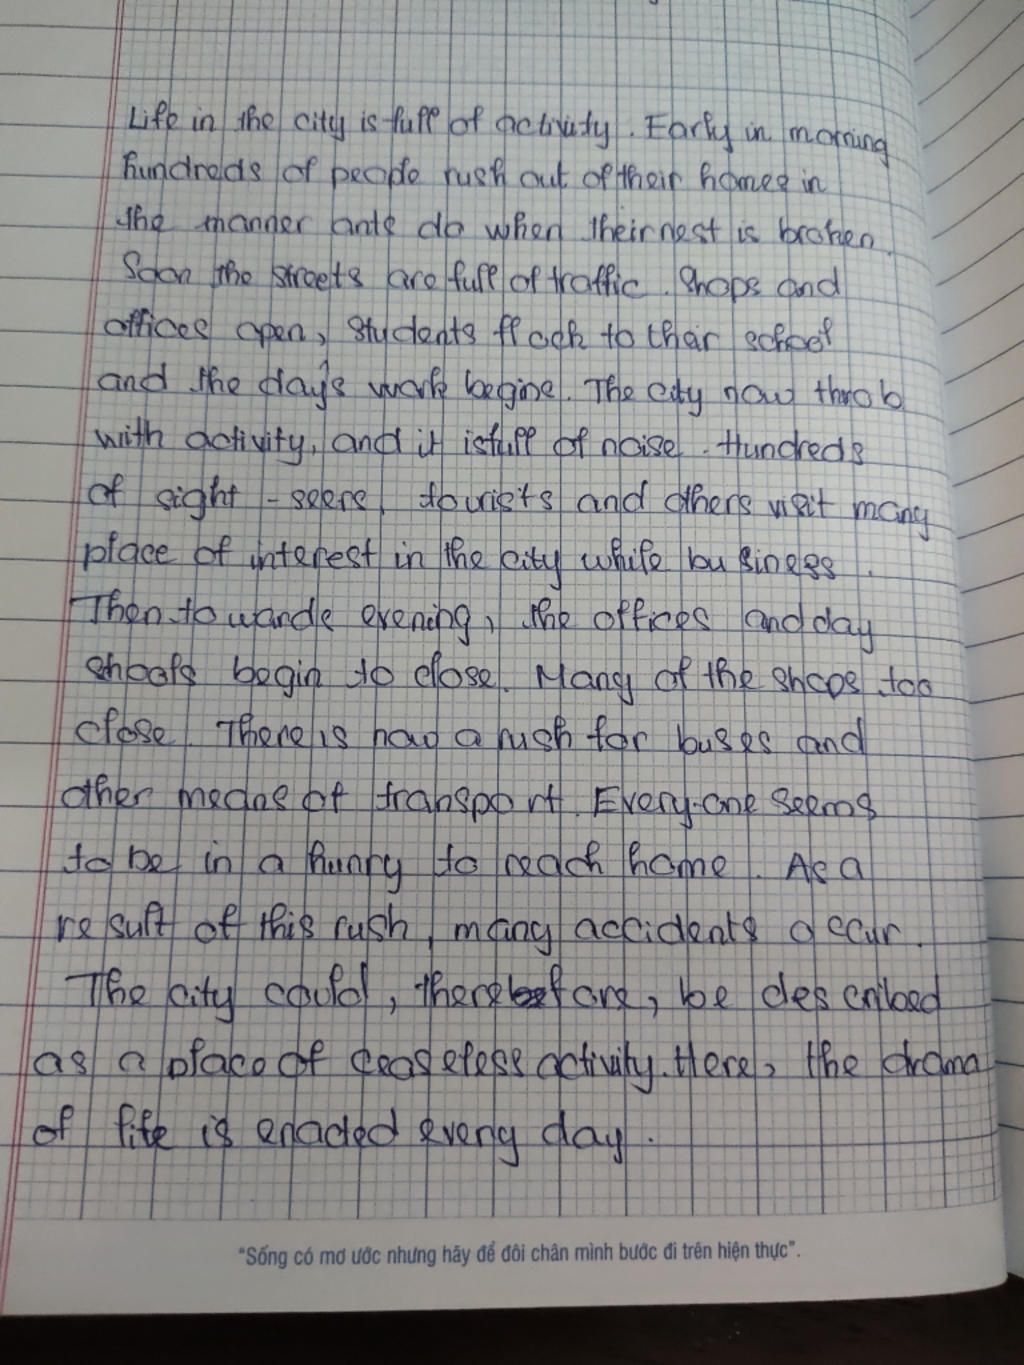 Life in the city is full of activity. Early in morning
hundreds of people rush out of their homes in
the manner ants do when their nest is broken.
Soon the streets are full of traffic. Shops and
offices open, students flock to their school
and the day's work begins. The city now throb
with activity, and it is full of noise. Hundreds
of sight-seers, tourists and others visit many
place of interest in the city while business.
Then towards evening, the offices and day
shools begin to close. Many of the shops too
close. There is now a rush for buses and
other means of transport. Every-one seems
to be in a hurry to reach home. As a
result of this rush, many accidents occur.
The city could, therefore, be described
as a place of ceaseless activity. Here, the drama
of life is enacted every day.
"Sống có mơ ước nhưng hãy để đôi chân mình bước đi trên hiện thực".